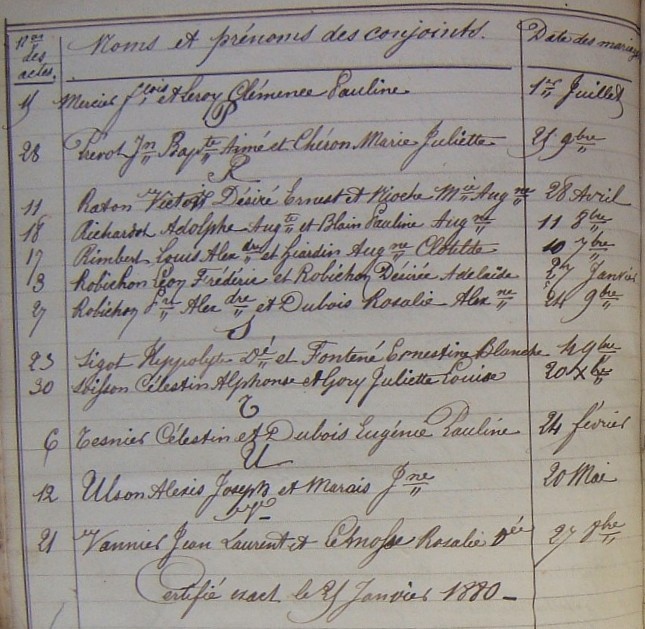 Nos des actes. Noms et prénoms des conjoints. Date des mariages
15 Mercier fçois et Leroy Clémence Pauline 1er Juillet
P
28 Prévot Jn Bapte Aimé et Chéron Marie Juliette 25 9bre
R
11 Raton Victor Désiré Ernest et Rioche Mie Augne 28 Avril
18 Richardot Adolphe Augte et Blain Pauline Augne 11 8bre
17 Rimbert Louis Alexdre et Liardin Augne Clotilde 10 7bre
3 Robichon Léon Frédéric et Robichon Désirée Adelaide Janvier
27 Robichon Alexdre et Dubois Rosalie Alexne 24 9bre
S
23 Sigot Hyppolyte Dé et Fontené Ernestine Blanche 4 9bre
30 Célestin Alphonse et Gory Juliette Louise 20 Xbre
T
6 Tesnier Célestin et Dubois Eugénie Pauline 24 février
U
12 Ulson Alexis Joseph et Marais Jne 20 Mai
V
21 Vannier Jean Laurent et Rosalie Dée 27 8bre
Certifié exact le 25 Janvier 1880